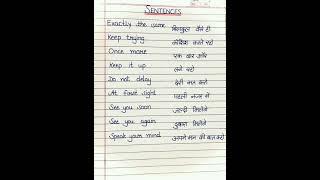 SENTENCES
Exactly the same बिल्कुल वैसे ही
Keep trying कोशिश करते रहो
Once more एक बार और
Keep it up लगे रहो
Do not delay देरी मत करो
At first sight पहली नजर में
See you soon जल्दी मिलेंगे
See you again दुबारा मिलेंगे
Speak your mind अपने मन की बात करो